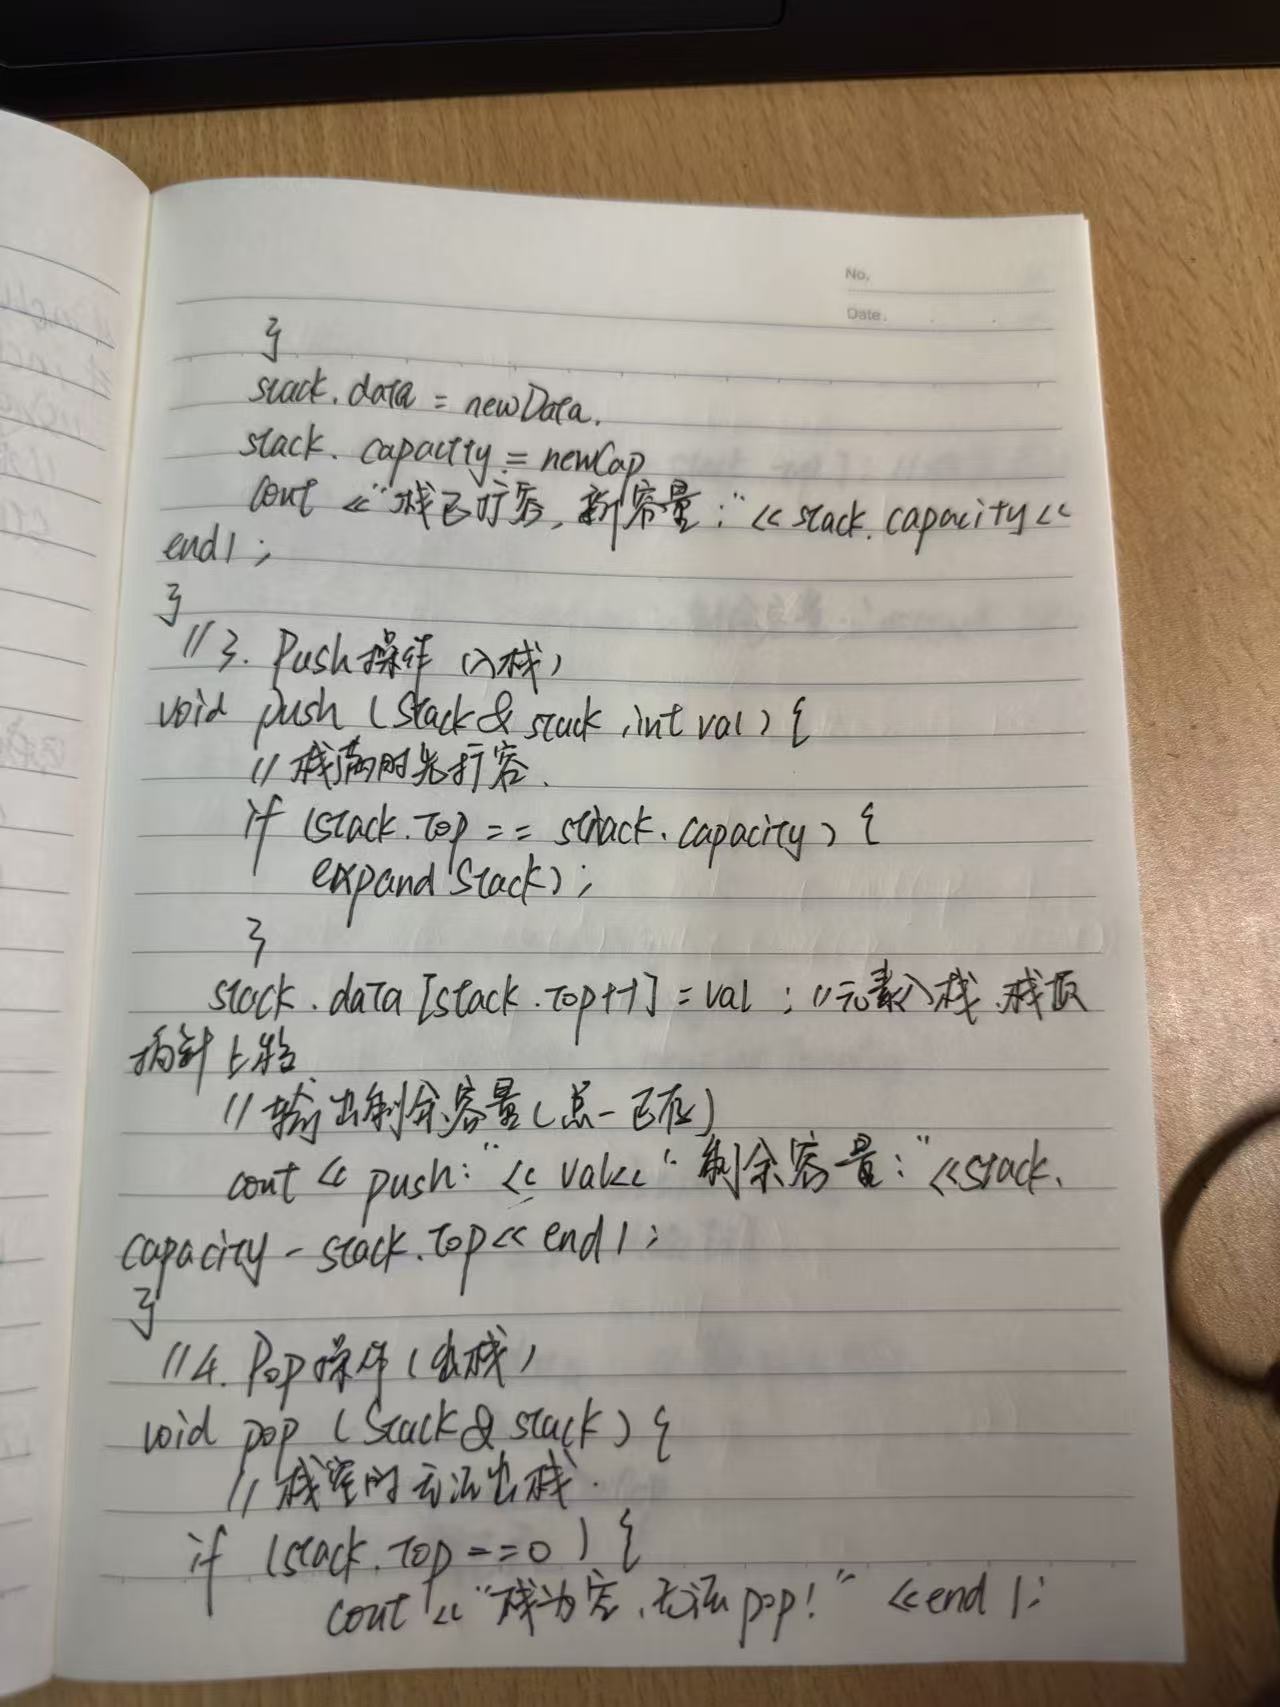 No.
Date.
}
stack.data = newData.
stack.capacity = newCap
cout <<"栈已扩容,新容量:"<<stack.capacity<<
endl;
}
//3. Push操作(入栈)
void push (Stack& stack,int val) {
//栈满时先扩容.
if (stack.top == stack.capacity) {
expand Stack);
}
stack.data[stack.top++]=val; //元素入栈,栈顶
指针上移
//输出剩余容量(总-已存)
cout << push:"<< val<<" 剩余容量:"<<stack.
capacity - stack.top<< endl;
}
//4. Pop操作(出栈)
void pop (Stack& stack) {
//栈空时无法出栈.
if (stack.top==0) {
cout <<"栈为空,无法pop!" <<endl;